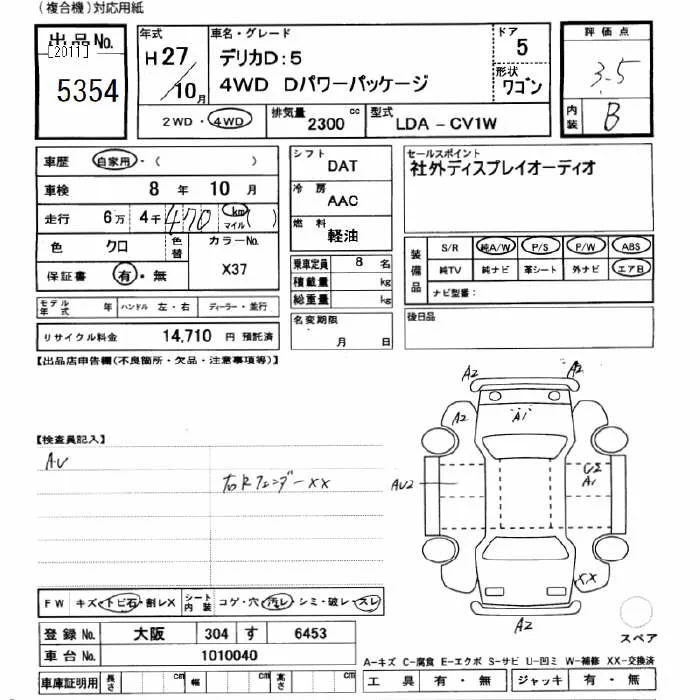 (複合機)対応用紙
出品No.
[2011]
5354
年式
H27/10月
車名・グレード
デリカD:5
4WD Dパワーパッケージ
ドア
5
形状
ワゴン
評価点
3.5
内装
B
2WD・4WD
排気量
2300 cc
型式
LDA-CV1W
車歴 自家用・( )
車検 8年 10月
走行 6万 4千 470 km マイル( )
色 クロ 色替
カラーNo.
X37
保証書 有・無
モデル年式 年 ハンドル 左・右 ディーラー・並行
リサイクル料金 14,710 円 預託済
シフト
DAT
冷房
AAC
燃料
軽油
乗車定員 8 名
積載量 kg
総重量 kg
名変期限
月 日
セールスポイント
社外ディスプレイオーディオ
装備品
S/R 純A/W P/S P/W ABS
純TV 純ナビ 革シート 外ナビ エアB
ナビ型番:
後日品
【出品店申告欄(不良箇所・欠品・注意事項等)】
【検査員記入】
AU
右Rフェンダー××
A2 A2
A2 A1 A2
AU2
U2
A1
XX
A2
スペア
FW キズ・トビ石・割レX シート内装 コゲ・穴・汚レ・シミ・破レ・スレ
登録No. 大阪 304 す 6453
車台No. 1010040
車庫証明用 長さ cm 幅 cm 高さ cm
A-キズ C-腐食 E-エクボ S-サビ U-凹ミ W-補修 XX-交換済
工具 有・無 ジャッキ 有・無